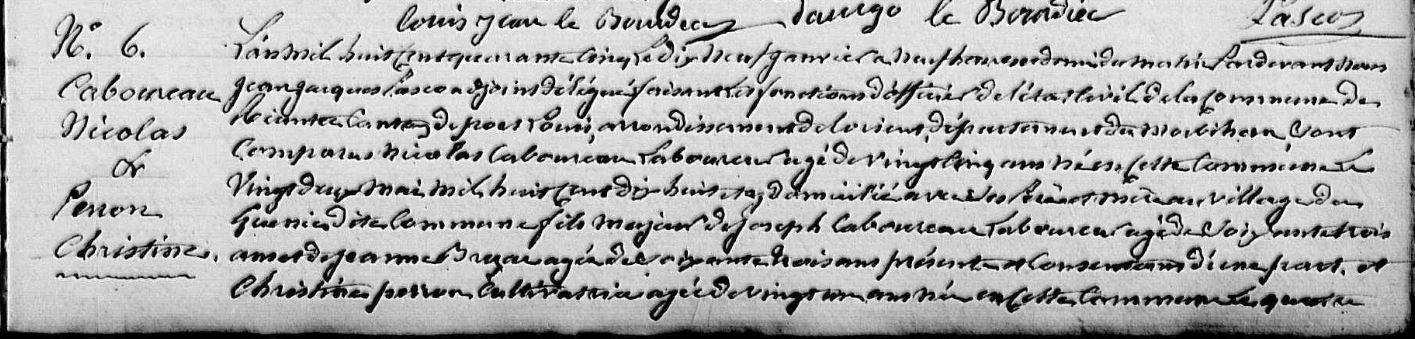 louis jean le Bourdiec danigo le Bourdiec Pasco
N.º 6.
Caboureau
Nicolas
&
Perron
Christine.
L'an mil huit cent quarante cinq le dix neuf janvier a neuf heures et demi du matin Par devant nous
jean jacques Pasco adjoint délégué faisant les fonctions d'officier de l'état Civil de la Commune de
Riantec Canton de port Louis, arrondissement de Lorient département du Morbihan, Sont
Comparus Nicolas Caboureau Laboureur agé de vingt Cinq ans né en cette Commune Le
Vingt deux Mai mil huit Cent dix huit, et domicilié avec Ses père et mère au village de
dite Commune fils majeur de joseph Caboureau Laboureur agé de Soixante trois
ans et de jeanne agée de Soixante trois ans présents et Consentans d'une part. et
Christine perron Cultivatrice agée de vingt un ans née en cette Commune Le quatre